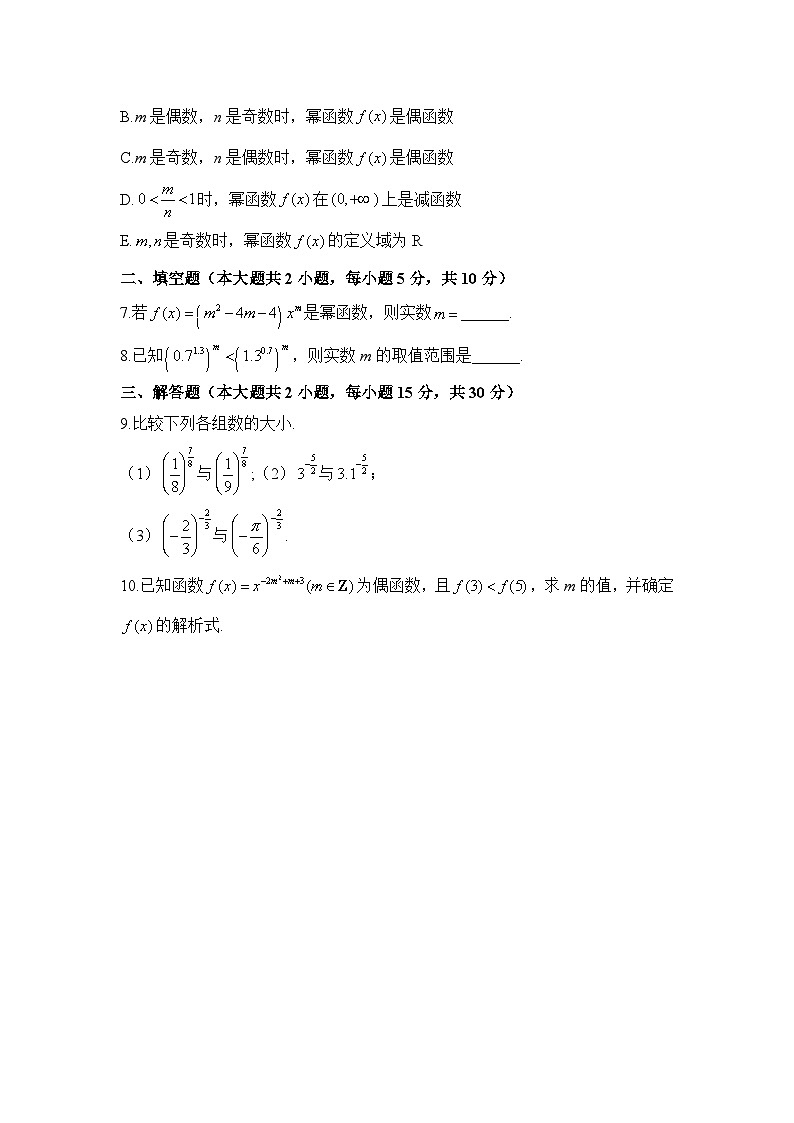 B.m 是偶数，n 是奇数时，幂函数 f (x) 是偶函数
C.m 是奇数，n 是偶数时，幂函数 f (x) 是偶函数
D. 0 < m/n < 1时，幂函数 f (x) 在 (0, +∞ ) 上是减函数
E. m, n是奇数时，幂函数 f (x) 的定义域为 R
二、填空题（本大题共 2 小题，每小题 5 分，共 10 分）
7.若 f (x) = (m² − 4m − 4) xᵐ是幂函数，则实数m = ______.
8.已知(0.7^1.3)^m < (1.3^0.7)^m，则实数 m 的取值范围是______.
三、解答题（本大题共 2 小题，每小题 15 分，共 30 分）
9.比较下列各组数的大小.
（1）(1/8)^(7/8) 与 (1/9)^(7/8)；（2） 3^(−5/2) 与 3.1^(−5/2)；
（3）(−2/3)^(−2/3) 与 (−π/6)^(−2/3).
10.已知函数 f (x) = x^(−2m²+m+3) (m ∈ Z) 为偶函数，且 f (3) < f (5)，求 m 的值，并确定
f (x) 的解析式.